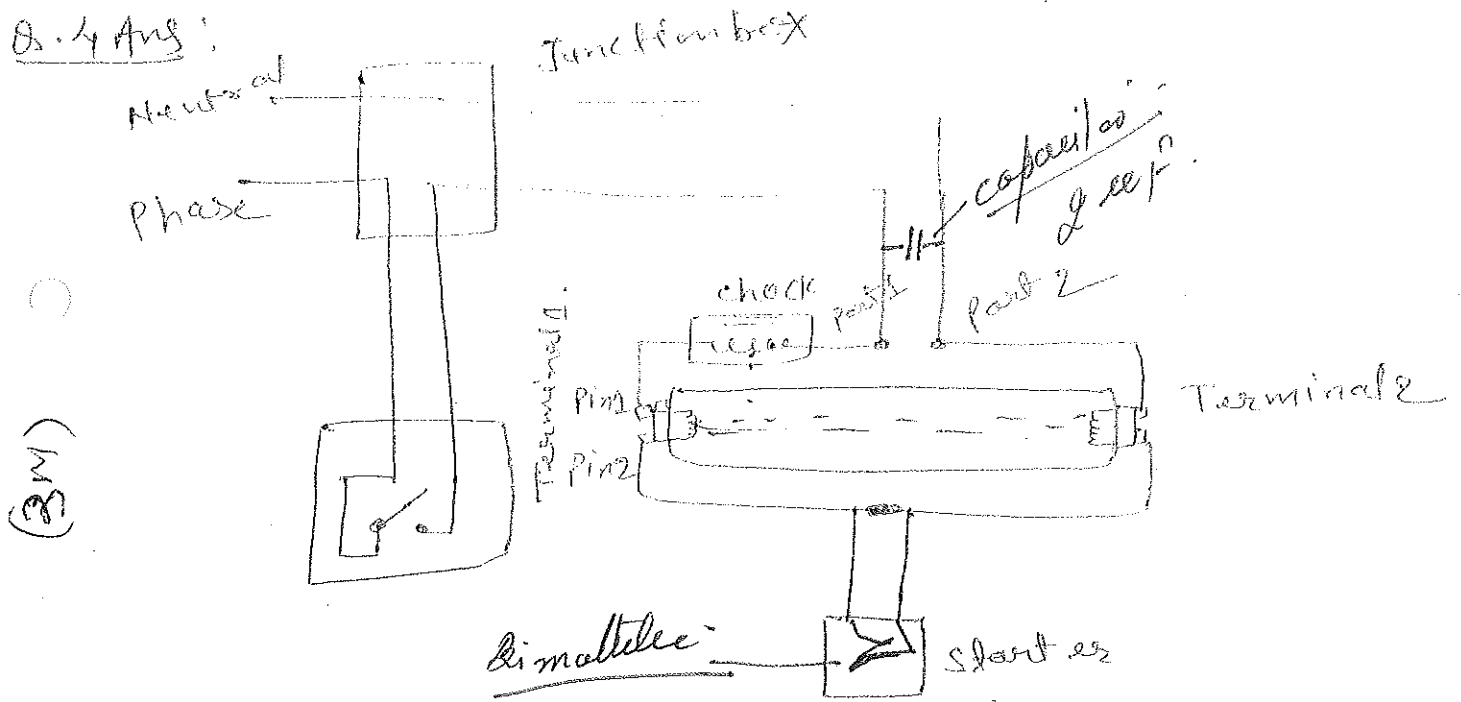 Q.4 Ans:
Junction box
Neutral
Phase
capacitor
chock
Part 1
Part 2
Terminal 1.
Pin1
Pin2
Terminal 2
(3M)
Starter